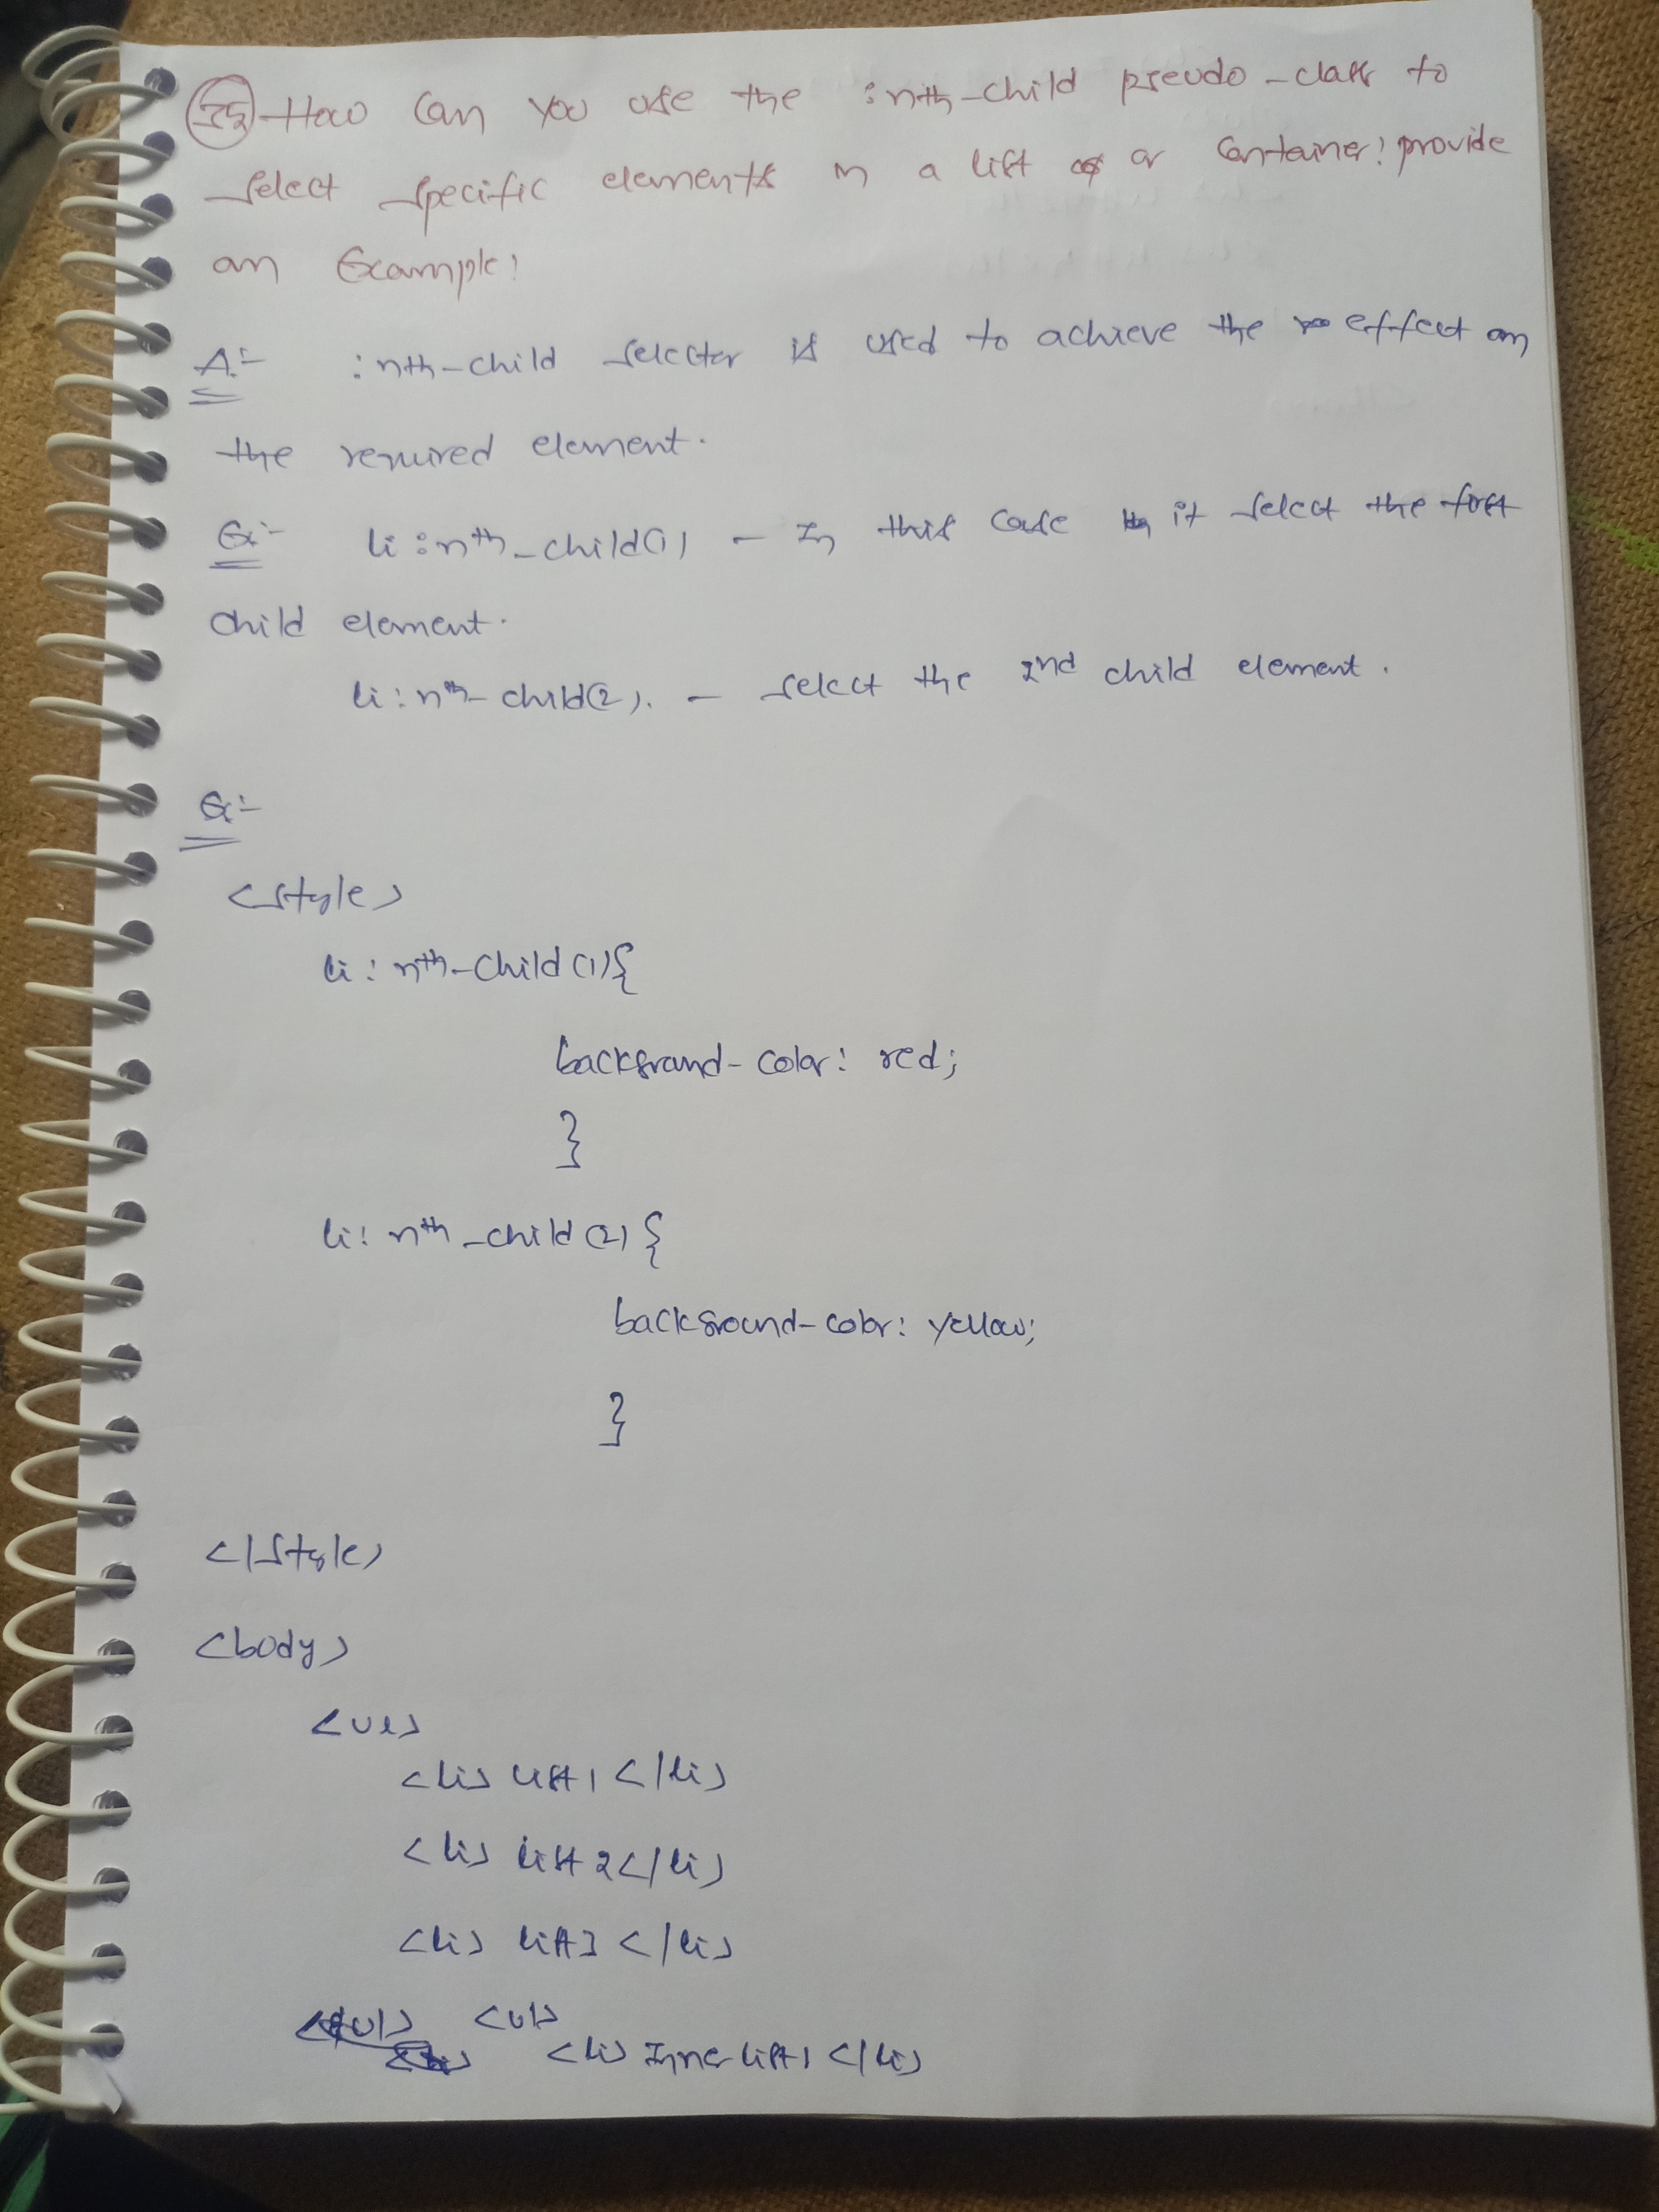 How can you use the :nth-child pseudo-class to
select specific elements in a list or container? provide
an Example?
A:- :nth-child selector is used to achieve the effect on
the required element.
Ex:- li:nth-child(1) - In this case it select the first
child element.
li:nth-child(2). - select the 2nd child element.
Ex:-
<style>
li:nth-child(1){
background-color: red;
}
li:nth-child(2){
background-color: yellow;
}
</style>
<body>
<ul>
<li> list 1 </li>
<li> list 2 </li>
<li> list 3 </li>
<ul>
<li> Inner list 1 </li>